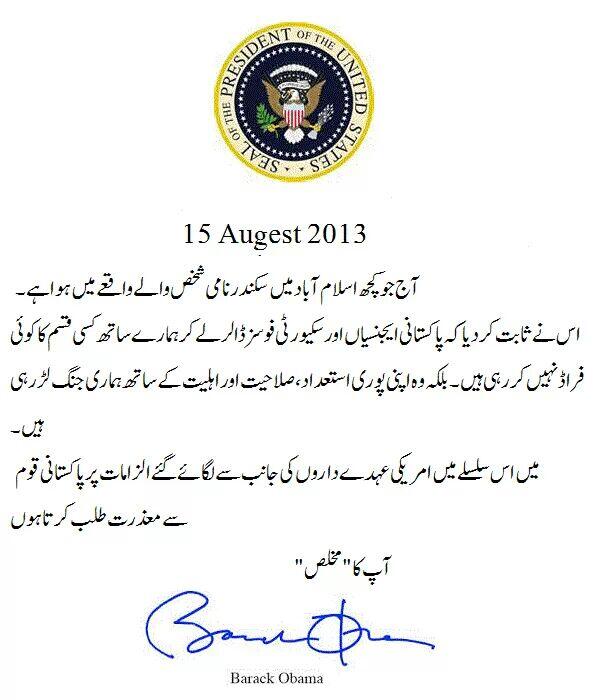 SEAL OF THE PRESIDENT OF THE UNITED STATES
15 Augest 2013
آج جو کچھ اسلام آباد میں سکندر نامی شخص والے واقعے میں ہوا ہے۔
اس نے ثابت کر دیا کہ پاکستانی ایجنسیاں اور سکیورٹی فوسز ڈالر لے کر ہمارے ساتھ کسی قسم کا کوئی
فراڈ نہیں کر رہی ہیں۔ بلکہ وہ اپنی پوری استعداد، صلاحیت اور اہلیت کے ساتھ ہماری جنگ لڑ رہی
ہیں۔
میں اس سلسلے میں امریکی عہدے داروں کی جانب سے لگائے گئے الزامات پر پاکستانی قوم
سے معذرت طلب کرتا ہوں
آپ کا "مخلص"
Barack Obama